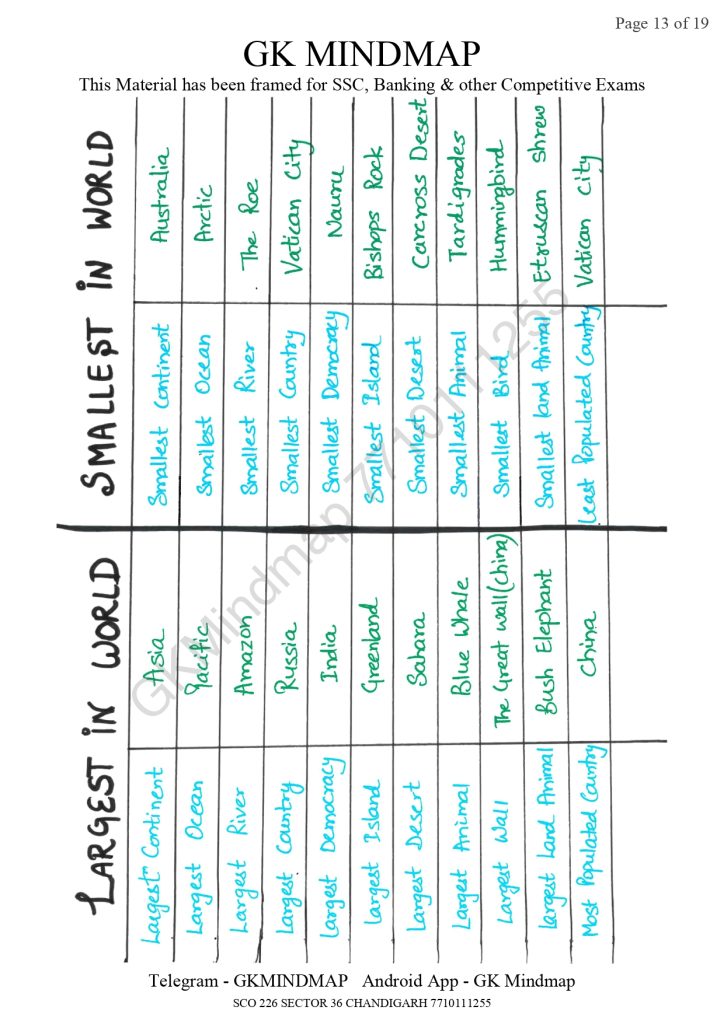 Page 13 of 19
GK MINDMAP
This Material has been framed for SSC, Banking & other Competitive Exams
LARGEST IN WORLD
SMALLEST IN WORLD
Largest Continent Asia Smallest Continent Australia
Largest Ocean Pacific Smallest Ocean Arctic
Largest River Amazon Smallest River The Roe
Largest Country Russia Smallest Country Vatican City
Largest Democracy India Smallest Democracy Nauru
Largest Island Greenland Smallest Island Bishops Rock
Largest Desert Sahara Smallest Desert Carcross Desert
Largest Animal Blue Whale Smallest Animal Tardigrades
Largest Wall The Great wall (China) Smallest Bird Hummingbird
Largest Land Animal Bush Elephant Smallest land Animal Etruscan Shrew
Most Populated Country China Least Populated Country Vatican City
GKMindmap 7710111255
Telegram - GKMINDMAP Android App - GK Mindmap
SCO 226 SECTOR 36 CHANDIGARH 7710111255